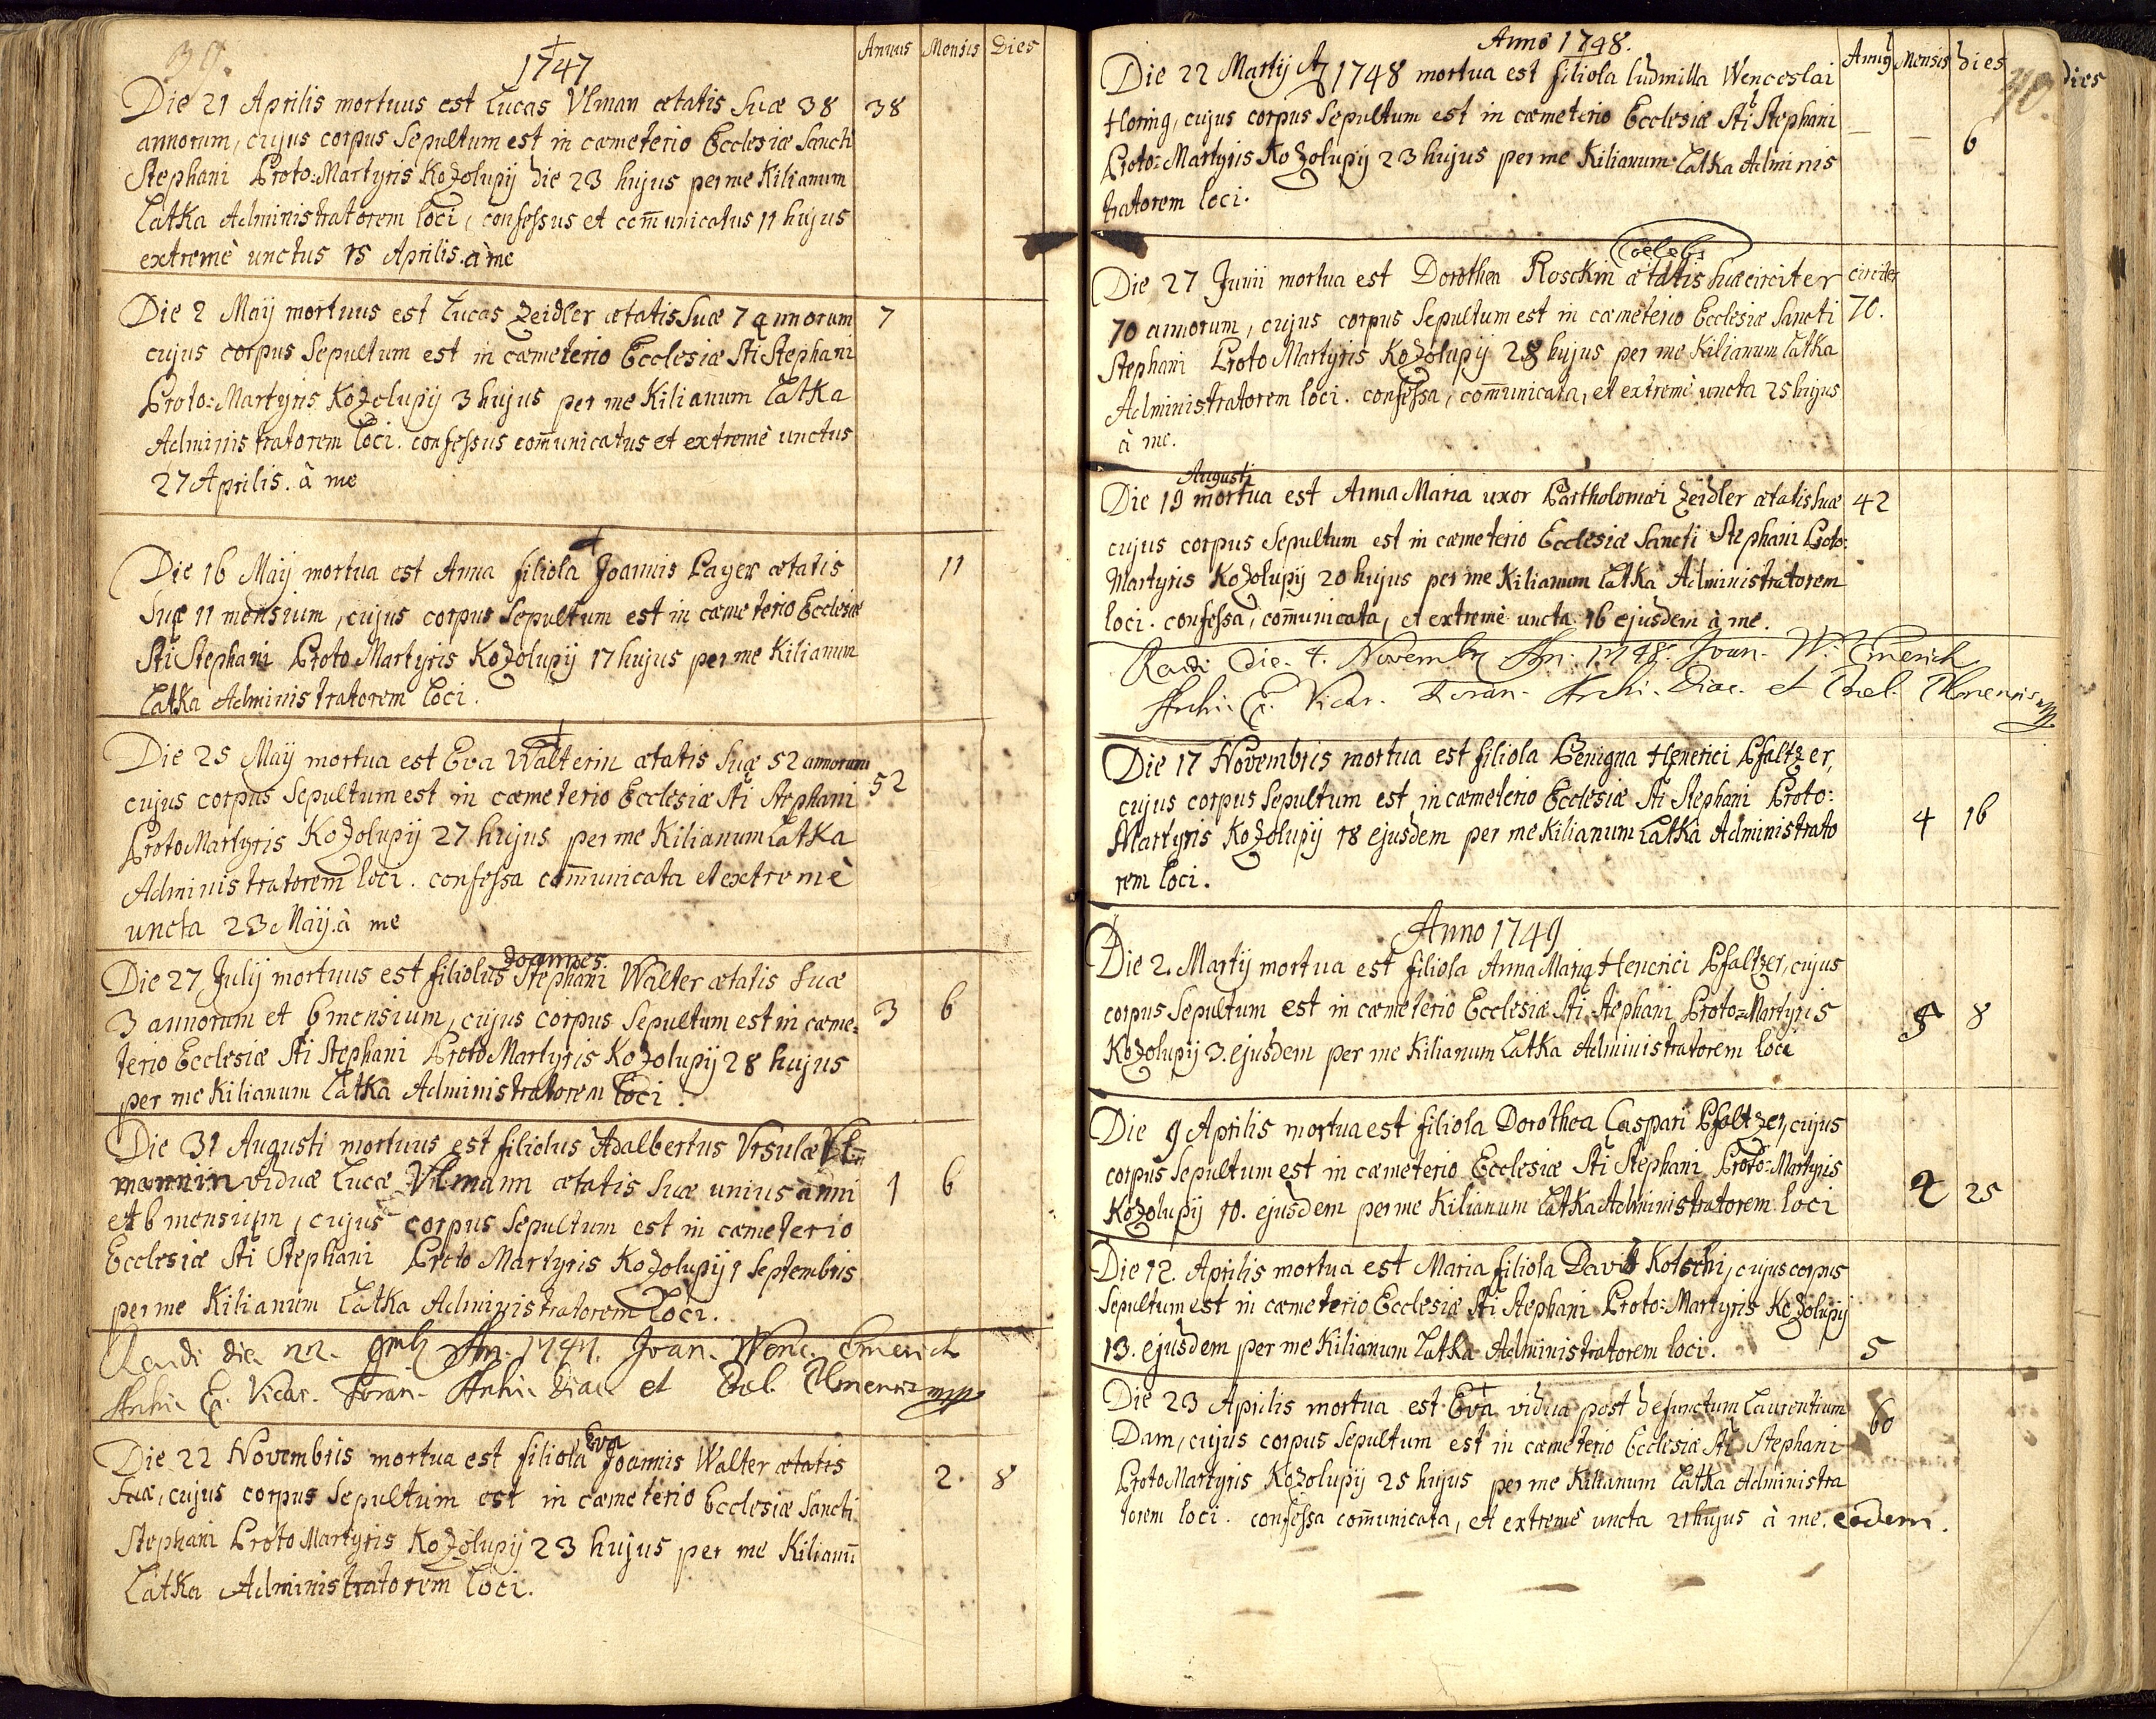 39.
1747
Annus Mensis Dies
Die 21 Aprilis mortuus est Lucas Vlman ætatis suæ 38 38
annorum, cujus corpus Sepultum est in cæmeterio Ecclesiæ Sancti
Stephani Proto=Martyris Kozolupij die 23 hujus per me Kilianum
Latka Administratorem loci, confessus et com̄unicatus 11 hujus
extremè unctus 15 Aprilis. à me
Die 2 Maij mortuus est Lucas Zeidler ætatis suæ 7 annorum 7
cujus corpus Sepultum est in cæmeterio Ecclesiæ Sti Stephani
Proto=Martyris Kozolupij 3 hujus per me Kilianum Latka
Administratorem loci. confessus com̄unicatus et extremè unctus
27 Aprilis. à me
Die 16 Maij mortua est Anna filiola Joannis Payer ætatis 11
suæ 11 mensium, cujus corpus Sepultum est in cæmeterio Ecclesiæ
Sti Stephani Proto Martyris Kozolupij 17 hujus per me Kilianum
Latka Administratorem loci.
Die 25 Maij mortua est Eva Walterin ætatis suæ 52 annorum 52
cujus corpus Sepultum est in cæmeterio Ecclesiæ Sti Stephani
Proto Martyris Kozolupij 27 hujus per me Kilianum Latka
Administratorem loci. confessa com̄unicata et extremè
uncta 23 Maij. à me
Joannes
Die 27 Julij mortuus est filiolus Stephani Walter ætatis suæ
3 annorum et 6 mensium, cujus corpus Sepultum est in cæme= 3 6
terio Ecclesiæ Sti Stephani Proto Martyris Kozolupij 28 hujus
per me Kilianum Latka Administratorem loci.
Die 31 Augusti mortuus est filiolus Adalbertus Vrsulæ Vl=
mannin viduæ Lucæ Vlmann ætatis suæ unius anni 1 6
et 6 mensium, cujus corpus Sepultum est in cæmeterio
Ecclesiæ Sti Stephani Proto Martyris Kozolupij 1 Septembris
per me Kilianum Latka Administratorem loci.
die 22. 9mb An. 1747. Joan. Wenc. Emerich
Vicar. Foran. Archi. Diac. et
Eva
Die 22 Novembris mortua est filiola Joannis Walter ætatis
suæ, cujus corpus Sepultum est in cæmeterio Ecclesiæ Sancti 2. 8
Stephani Proto Martyris Kozolupij 23 hujus per me Kilianum̄
Latka Administratorem loci.
Anno 1748.
Annus Mensis dies
40.
dies
Die 22 Martij A 1748 mortua est filiola ludmilla Wenceslai
Horing, cujus corpus Sepultum est in cæmeterio Ecclesiæ Sti Stephani — — 6
Proto=Martyris Kozolupij 23 hujus per me Kilianum Latka Adminis
tratorem loci.
Cælebs
Die 27 Junii mortua est Dorothea Rosckin ætatis suæ circiter circiter
70 annorum, cujus corpus Sepultum est in cæmeterio Ecclesiæ Sancti 70.
Stephani Proto Martyris Kozolupij 28 hujus per me Kilianum Latka
Administratorem loci. confessa, com̄unicata, et extremè uncta 25 hujus
à me.
Augusti
Die 19 mortua est Anna Maria uxor Bartholomæi Zeidler ætatis suæ 42
cujus corpus Sepultum est in cæmeterio Ecclesiæ Sancti Stephani Proto:
Martyris Kozolupij 20 hujus per me Kilianum Latka Administratorem
loci. confessa, com̄unicata, et extremè uncta 16 ejusdem à me.
Die. 4. Novemb An. 1748. Joan. W. Emerich
Vicar. Foran. Archi. Diac. et
Die 17 Novembris mortua est filiola Benigna Henrici Pfaltzer,
cujus corpus Sepultum est in cæmeterio Ecclesiæ Sti Stephani Proto:
Martyris Kozolupij 18 ejusdem per me Kilianum Latka Administrato 4 16
rem loci.
Anno 1749
Die 2. Martij mortua est filiola Anna Maria Henrici Pfaltzer, cujus
corpus Sepultum est in cæmeterio Ecclesiæ Sti Stephani Proto=Martyris 8
Kozolupij 3. ejusdem per me Kilianum Latka Administratorem loci
Die 9 Aprilis mortua est filiola Dorothea Caspari Pfaltzer, cujus
corpus Sepultum est in cæmeterio Ecclesiæ Sti Stephani Proto=Martyris 2 25
Kozolupij 10. ejusdem per me Kilianum Latka Administratorem loci
Die 12. Aprilis mortua est Maria filiola David Kotschi, cujus corpus
Sepultum est in cæmeterio Ecclesiæ Sti Stephani Proto=Martyris Kozolupij
13. ejusdem per me Kilianum Latka Administratorem loci. 5
Die 23 Aprilis mortua est Eva vidua post defunctum Laurentium 60
Dam, cujus corpus Sepultum est in cæmeterio Ecclesiæ Sti Stephani
Proto Martyris Kozolupij 25 hujus per me Kilianum Latka Administra
torem loci. confessa com̄unicata, et extremè uncta 21 hujus à me. eodem.